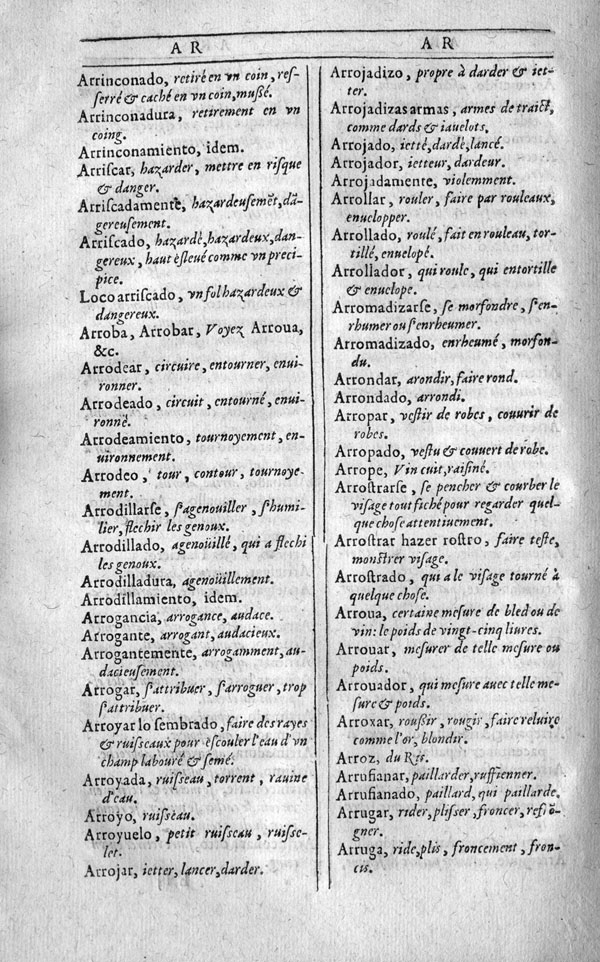 A R
Arrinconado, retiré en vn coin, reſ-
ſerré & caché en vn coin, muſſé.
Arrinconadura, retirement en vn
coing.
Arrinconamiento, idem.
Arriſcar, hazarder, mettre en riſque
& danger.
Arriſcadamente, hazardeuſemẽt, dã-
gereuſement.
Arriſcado, hazardè, hazardeux, dan-
gereux, haut èſleué comme vn preci-
pice.
Loco arriſcado, vn fol hazardeux &
dangereux.
Arroba, Arrobar, Voyez Arroua,
&c.
Arrodear, circuire, entourner, enui-
ronner.
Arrodeado, circuit, entourné, enui-
ronnè.
Arrodeamiento, tournoyement, en-
uironnement.
Arrodeo, tour, contour, tournoye-
ment.
Arrodillarſe, s'agenouiller, s'humi-
lier, flechir les genoux.
Arrodillado, agenoüillé, qui a flechi
les genoux.
Arrodilladura, agenoüillement.
Arrodillamiento, idem.
Arrogancia, arrogance, audace.
Arrogante, arrogant, audacieux.
Arrogantemente, arrogamment, au-
dacieuſement.
Arrogar, s'attribuer, s'arroguer, trop
s'attribuer.
Arroyar lo ſembrado, faire des rayes
& ruiſſeaux pour èſcouler l'eau d'vn
champ labouré & ſemé.
Arroyada, ruiſſeau, torrent, rauine
d'eau.
Arroyo, ruiſſeau.
Arroyuelo, petit ruiſſeau, ruiſſe-
let.
Arrojar, ietter, lancer, darder.
A R
Arrojadizo, propre à darder & iet-
ter.
Arrojadizas armas, armes de traict,
comme dards & iauelots.
Arrojado, ietté, dardè, lancé.
Arrojador, ietteur, dardeur.
Arrojadamente, violemment.
Arrollar, rouler, faire par rouleaux,
enuelopper.
Arrollado, roulé, fait en rouleau, tor-
tillé, enuelopé.
Arrollador, qui roule, qui entortille
& enuelope.
Arromadizarſe, ſe morfondre, s'en-
rhumer ou s'enrheumer.
Arromadizado, enrheumé, morfon-
du.
Arrondar, arondir, faire rond.
Arrondado, arrondi.
Arropar, veſtir de robes, couurir de
robes.
Arropado, veſtu & couuert de robe.
Arrope, Vin cuit, raiſiné.
Arroſtrarſe, ſe pencher & courber le
viſage tout fiché pour regarder quel-
que choſe attentiuement.
Arroſtrar hazer roſtro, faire teſte,
monſtrer viſage.
Arroſtrado, qui a le viſage tourné à
quelque choſe.
Arroua, certaine meſure de bled ou de
vin: le poids de vingt-cinq liures.
Arrouar, meſurer de telle meſure ou
poids.
Arrouador, qui meſure auec telle me-
ſure & poids.
Arroxar, rouſſir, rougir, faire reluire
comme l'or, blondir.
Arroz, du Ris.
Arrufianar, paillarder, ruffienner.
Arrufianado, paillard, qui paillarde.
Arrugar, rider, pliſſer, froncer, refrō-
gner.
Arruga, ride, plis, froncement, fron-
cis.